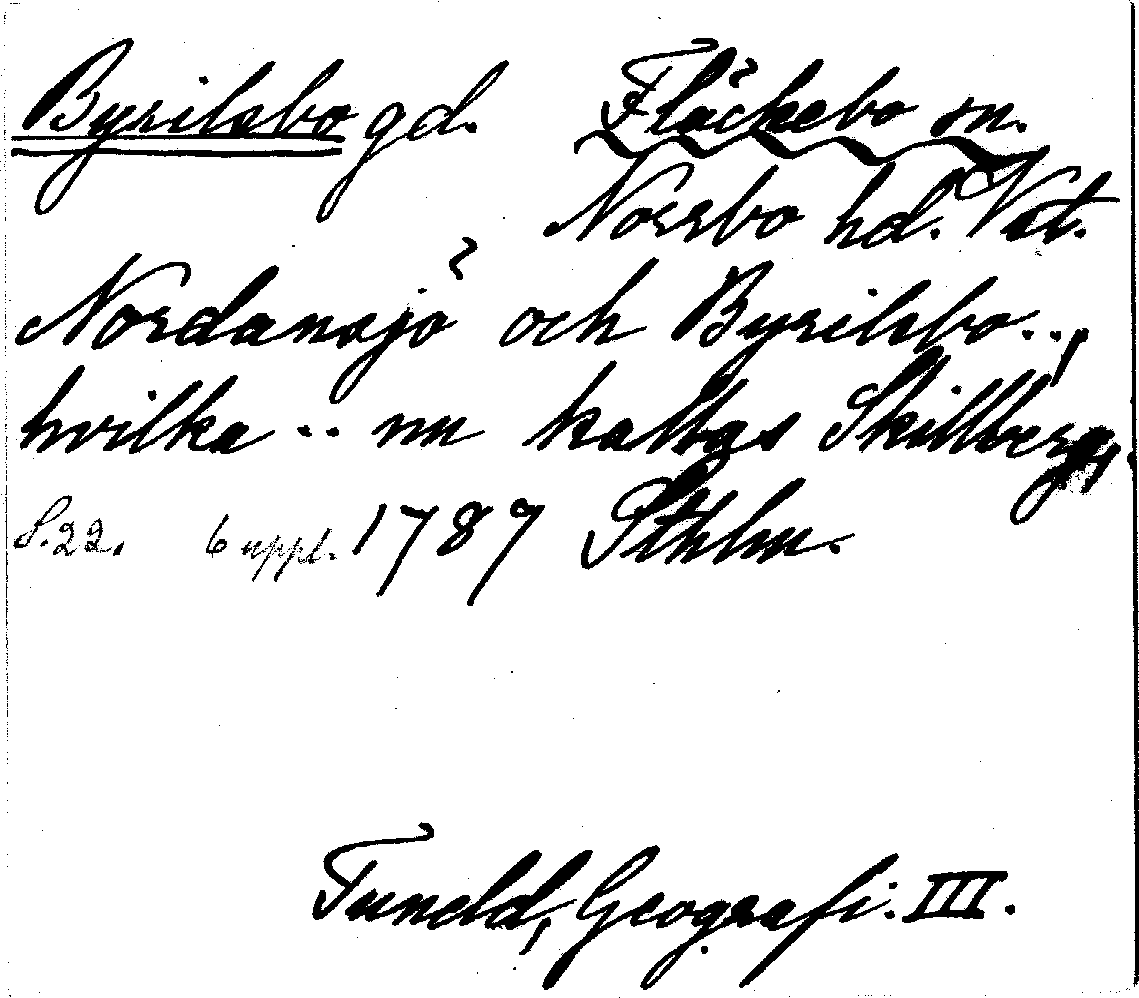 Byrilsbo gd. Fläckebo sn.
Norrbo hd. Vst.
Nordansjö och Byrilsbo..,
hvilka .. nu kallas Skillberg,
S.22. 6 uppl. 1787 Sthlm.
Tuneld, Geografi. III.